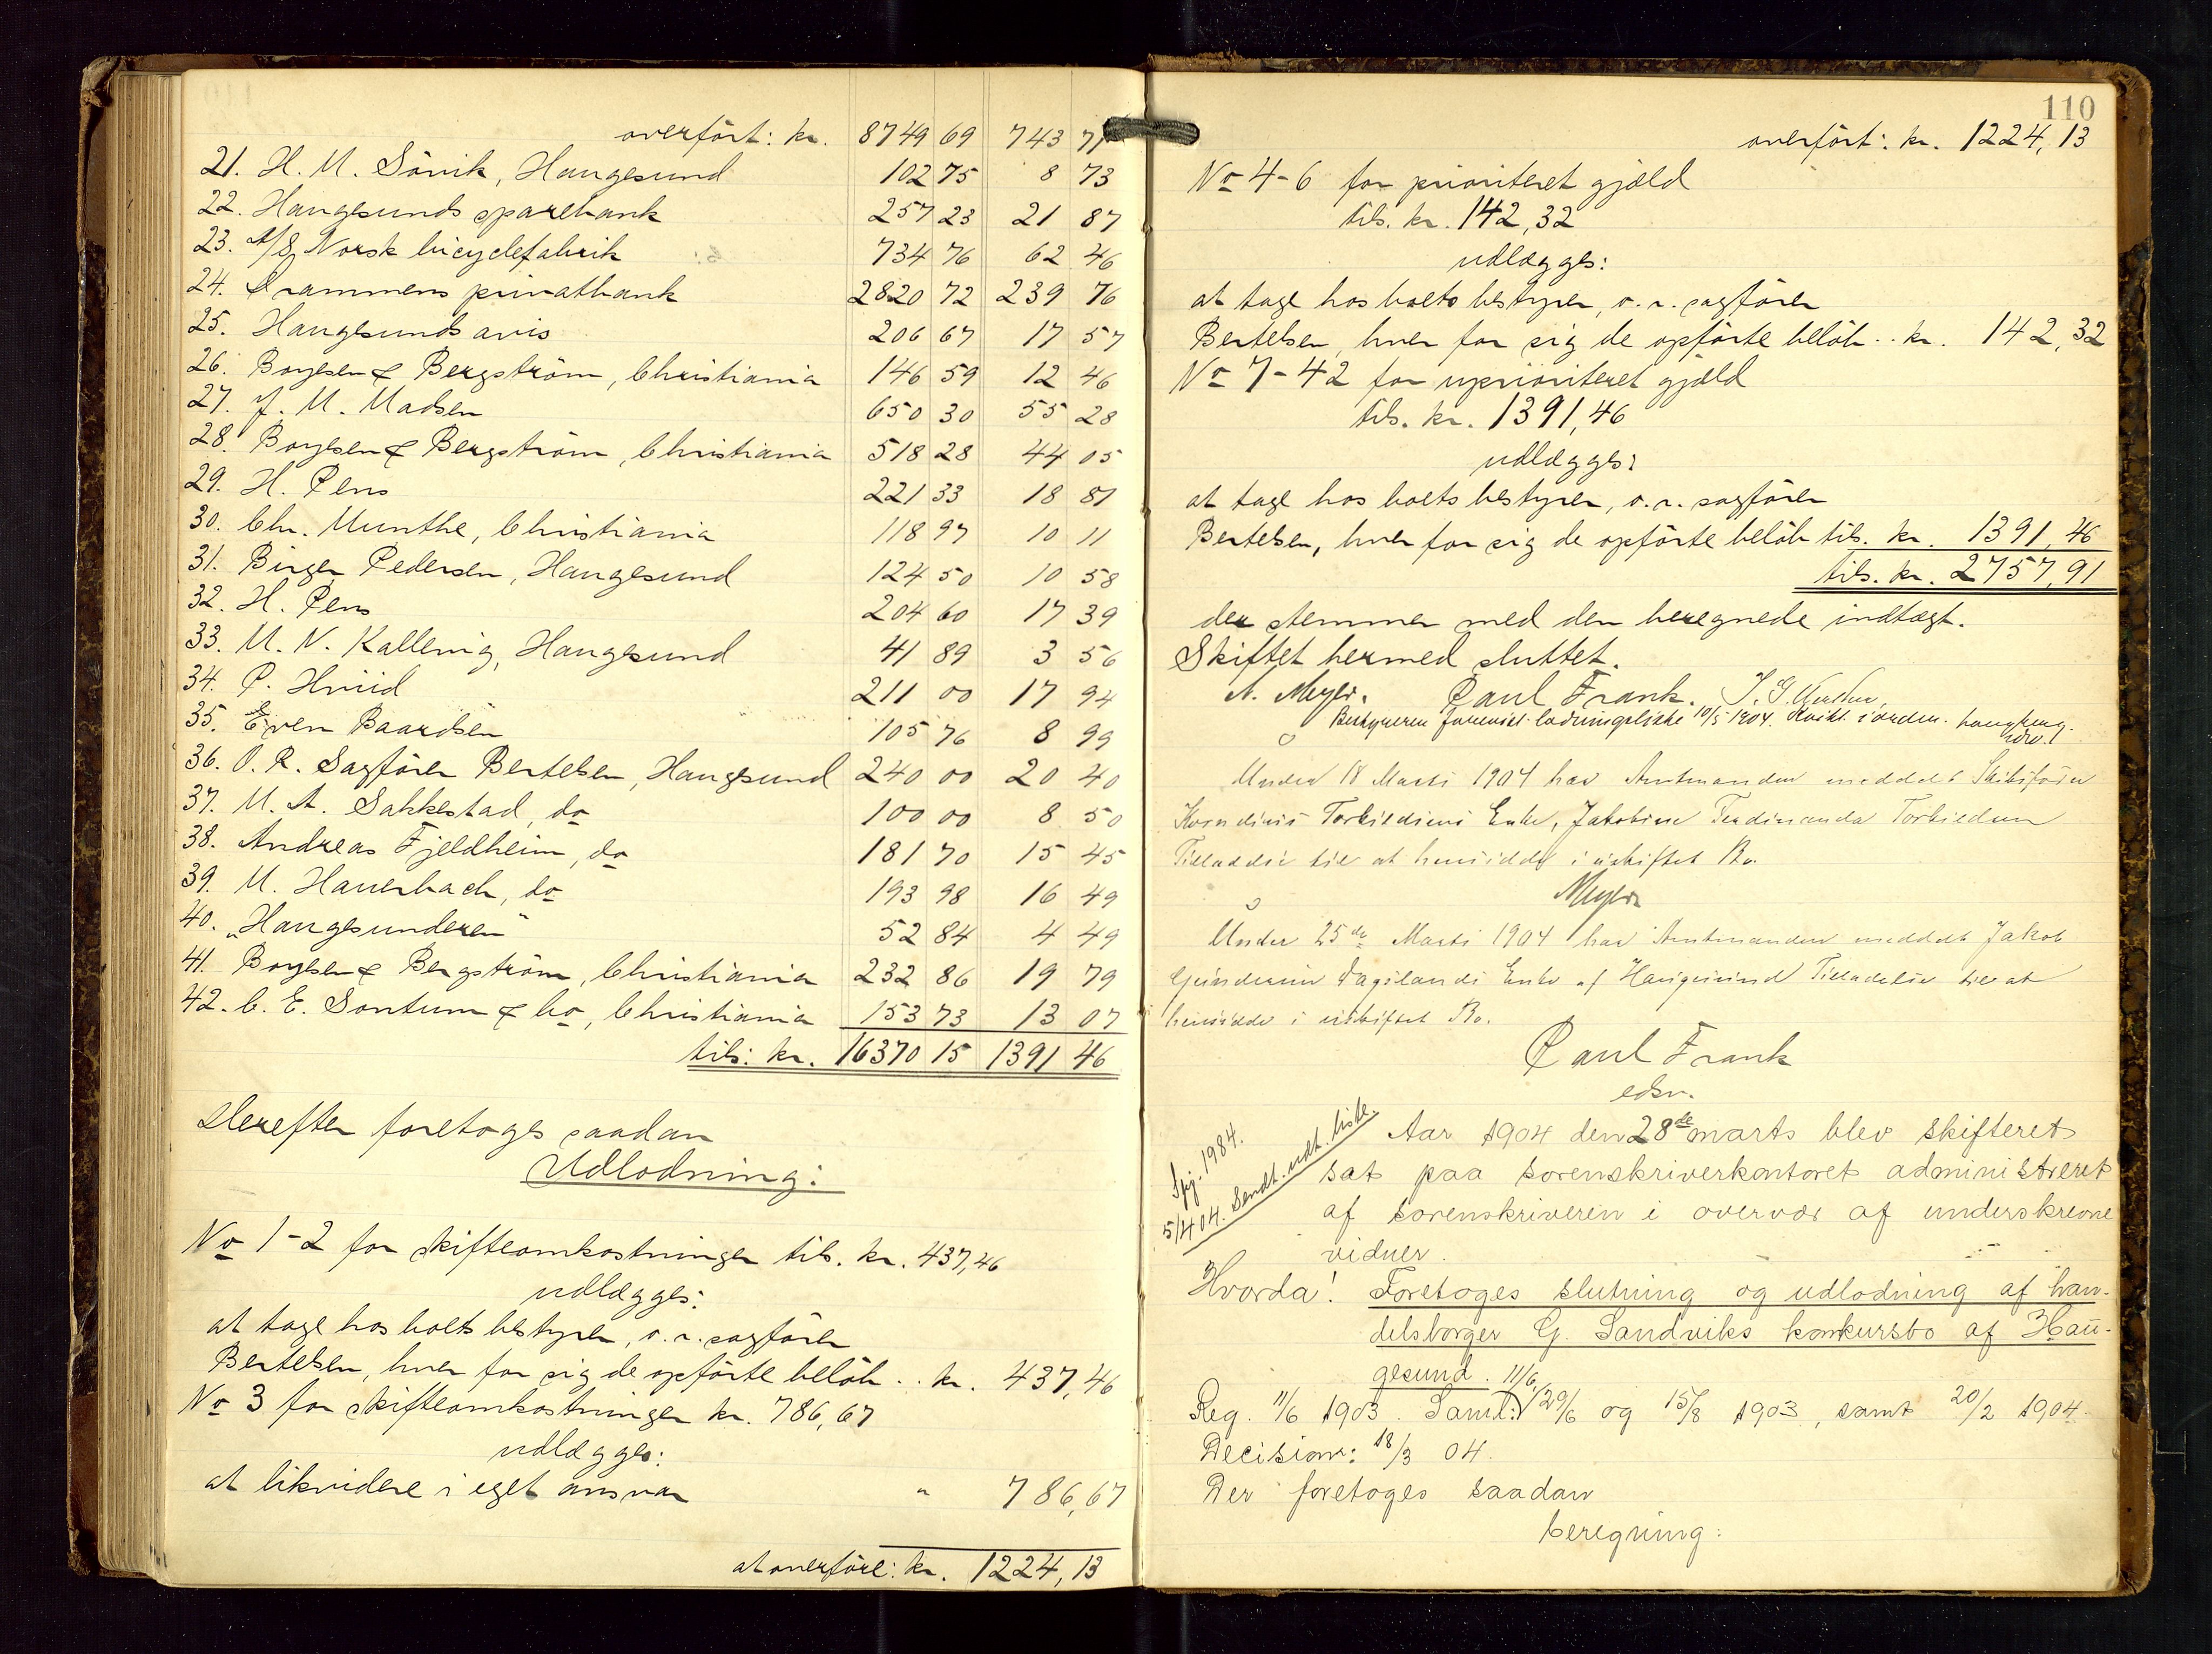 overført: kr. 8749 69 743 71
21. H. M. Sörvik, Haugesund 102 75 8 73
22. Haugesunds sparebank 257 23 21 87
23. A/S Norsk bicyclefabrik 734 76 62 46
24. Drammens privatbank 2820 72 239 76
25. Haugesunds avis 206 67 17 57
26. Boysen & Bergström, Christiania 146 59 12 46
27. J. M. Madsen 650 30 55 28
28. Boysen & Bergström, Christiania 518 28 44 05
29. H. Pens 221 33 18 81
30. Chr. Munthe, Christiania 118 97 10 11
31. Birger Pedersen, Haugesund 124 50 10 58
32. H. Pens 204 60 17 39
33. M. N. Kallevig, Haugesund 41 89 3 56
34. P. Hviid 211 00 17 94
35. Even Baardsen 105 76 8 99
36. O. R. Sagförer Bertelsen, Haugesund 240 00 20 40
37. M. A. Sakkestad, do 100 00 8 50
38. Andreas Fjeldheim, do 181 70 15 45
39. M. Hauerbach, do 193 98 16 49
40. "Haugesunderen" 52 84 4 49
41. Boysen & Bergström, Christiania 232 86 19 79
42. C. E. Sontum & Co, Christiania 153 73 13 07
tils: kr. 16370 15 1391 46
Derefter foretoges saadan
Udlodning:
No 1-2 for skifteomkostninger tils. kr. 437,46
udlægges:
at tage hos boets bestyrer, o. r. sagförer
Bertelsen, hver for sig de opförte belöb .. kr. 437,46
No 3 for skifteomkostninger kr. 786,67
udlægges:
at likvidere i eget ansvar " 786,67
at overföre: kr. 1224,13
110
overfört: kr. 1224,13
No 4-6 for prioriteret gjæld
tils. kr. 142,32
udlægges:
at tage hos boets bestyrer, o. r. sagförer
Bertelsen, hver for sig de opförte belöb .. kr. 142,32
No 7-42 for uprioriteret gjæld
tils. kr. 1391,46
udlægges:
at tage hos boets bestyrer, o. r. sagförer
Bertelsen, hver for sig de opförte belöb tils. kr. 1391,46
tils. kr. 2757,91
der stemmer med den beregnede indtægt.
Skiftet hermed sluttet.
A. Meyer. Paul Frank.
Bestyreren forevist lodningsliste 10/5 1904.
Under 18 Marts 1904 har Amtmanden meddelt Skibsförer
Torkildsens Enke, Jakobine Ferdinanda Torkildsen
Tilladelse til at hensidde i uskiftet Bo.
Meyer
Under 25de Marts 1904 har Amtmanden meddelt Jakob
Gundersen Enke af Haugesund Tilladelse til at
hensidde i uskiftet Bo.
Paul Frank
edsv.
Spj. 1984.
5/4 04. Sendt. udt. liste.
Aar 1904 den 28de marts blev skifteret
sat paa sorenskriverkontoret administreret
af sorenskriveren i overvær af underskrevne
vidner.
Hvorda! Foretoges slutning og udlodning af han-
delsborger G. Sandviks konkursbo af Hau-
gesund.
11/6,
Reg. 11/6 1903. Saml: 29/6 og 15/8 1903, samt 20/2 1904.
Decision: 18/3 04.
Der foretoges saadan
beregning: